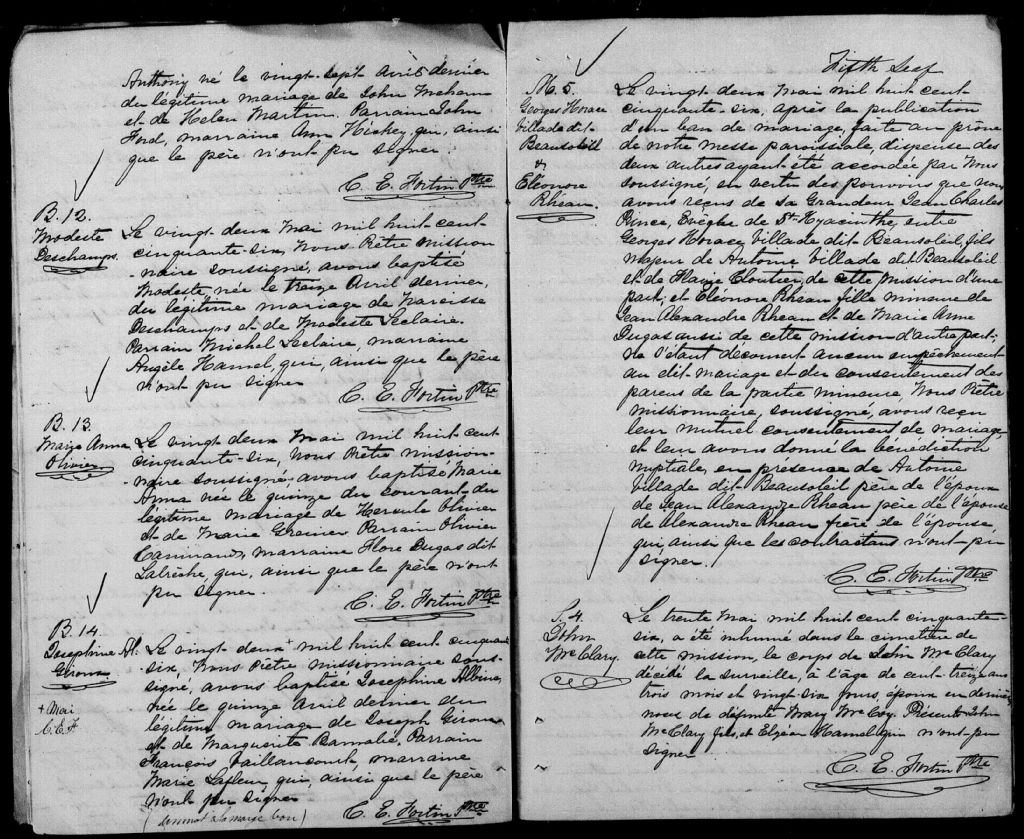 Anthony né le vingt-sept Avril dernier
du légitime mariage de John
et de Helen Martin. Parrain John
Ford, marraine Ann Hickey, qui, ainsi
que le père n'ont pu signer.
C. E. Fortin Ptre
B. 12.
Modeste
Deschamps.
Le vingt deux Mai mil huit cent
cinquante-six, Nous Prêtre mission
-naire soussigné, avons baptisé
Modeste, née le treize Avril dernier,
du légitime mariage de Narcisse
Deschamps et de Modeste Leclaire.
Parrain Michel Leclaire, marraine
Angèle Hamel, qui, ainsi que le père
n'ont pu signer
C. E. Fortin Ptre
B. 13
Marie Anna
Olivier
Le vingt deux Mai mil huit cent
cinquante-six, Nous Prêtre mission-
-naire soussigné, avons baptisé Marie
Anna née le quinze du courant du
légitime mariage de Hercule Olivier
et de Marie Grenier Parrain Olivier
marraine Flore Dugas dit
Labrèche, qui, ainsi que le père n'ont
pu signer.
C. E. Fortin Ptre
B. 14.
Josephine Al.
Giroux
+ Mai
C. E. F.
Le vingt deux + mil huit cent cinquante
six, Nous Prêtre missionnaire sous-
signé, avons baptisé Josephine Albina,
née le quinze Avril dernier du
légitime mariage de Joseph Giroux
et de Marguerite Barnabé, Parrain
François Vaillancourt, marraine
Marie Lafleur, qui, ainsi que le père
n'ont pu signer
( à la marge bon)
C. E. Fortin Ptre
Fifth Leef
M. 5.
Georges Horace
Villade dit
Beausoleil
&
Eléonore
Rheau.
Le vingt deux Mai mil huit cent
cinquante-six, après la publication
d'un ban de mariage, faite au prône
de notre messe paroissiale, dispense des
deux autres ayant été accordée par Nous
soussigné, en vertu des pouvoirs que nous
avons reçus de sa Grandeur Jean Charles
Prince, Evêque de St. Hyacinthe, entre
Georges Horace Villade dit Beausoleil, fils
majeur de Antoine Villade dit Beausoleil
et de Cloutier, de cette mission d'une
part; et Eléonore Rheau fille mineure de
Jean Alexandre Rheau et de Marie Anne
Dugas aussi de cette mission d'autre part;
Ne s'étant découvert aucun empêchement
au dit mariage et du consentement des
parens de la partie mineure, Nous Prêtre
missionnaire, soussigné, avons reçu
leur mutuel consentement de mariage,
et leur avons donné la bénédiction
nuptiale, en présence de Antoine
Villade dit Beausoleil père de l'époux
de Jean Alexandre Rheau père de l'épouse
de Alexandre Rheau frère de l'épouse,
qui, ainsi que les contractans n'ont pu
signer.
C. E. Fortin Ptre
S. 4.
John
McClary.
Le trente Mai mil huit cent cinquante
six, a été inhumé dans le cimetière de
cette mission, le corps de John McClary
décédé la surveille, à l'âge de cent-treize ans
trois mois et vingt six jours, époux en dernières
noces de défunte Mary McCoy. Présents John
McClary fils, et Elzéar Hamel qui n'ont pu
signer
C. E. Fortin Ptre